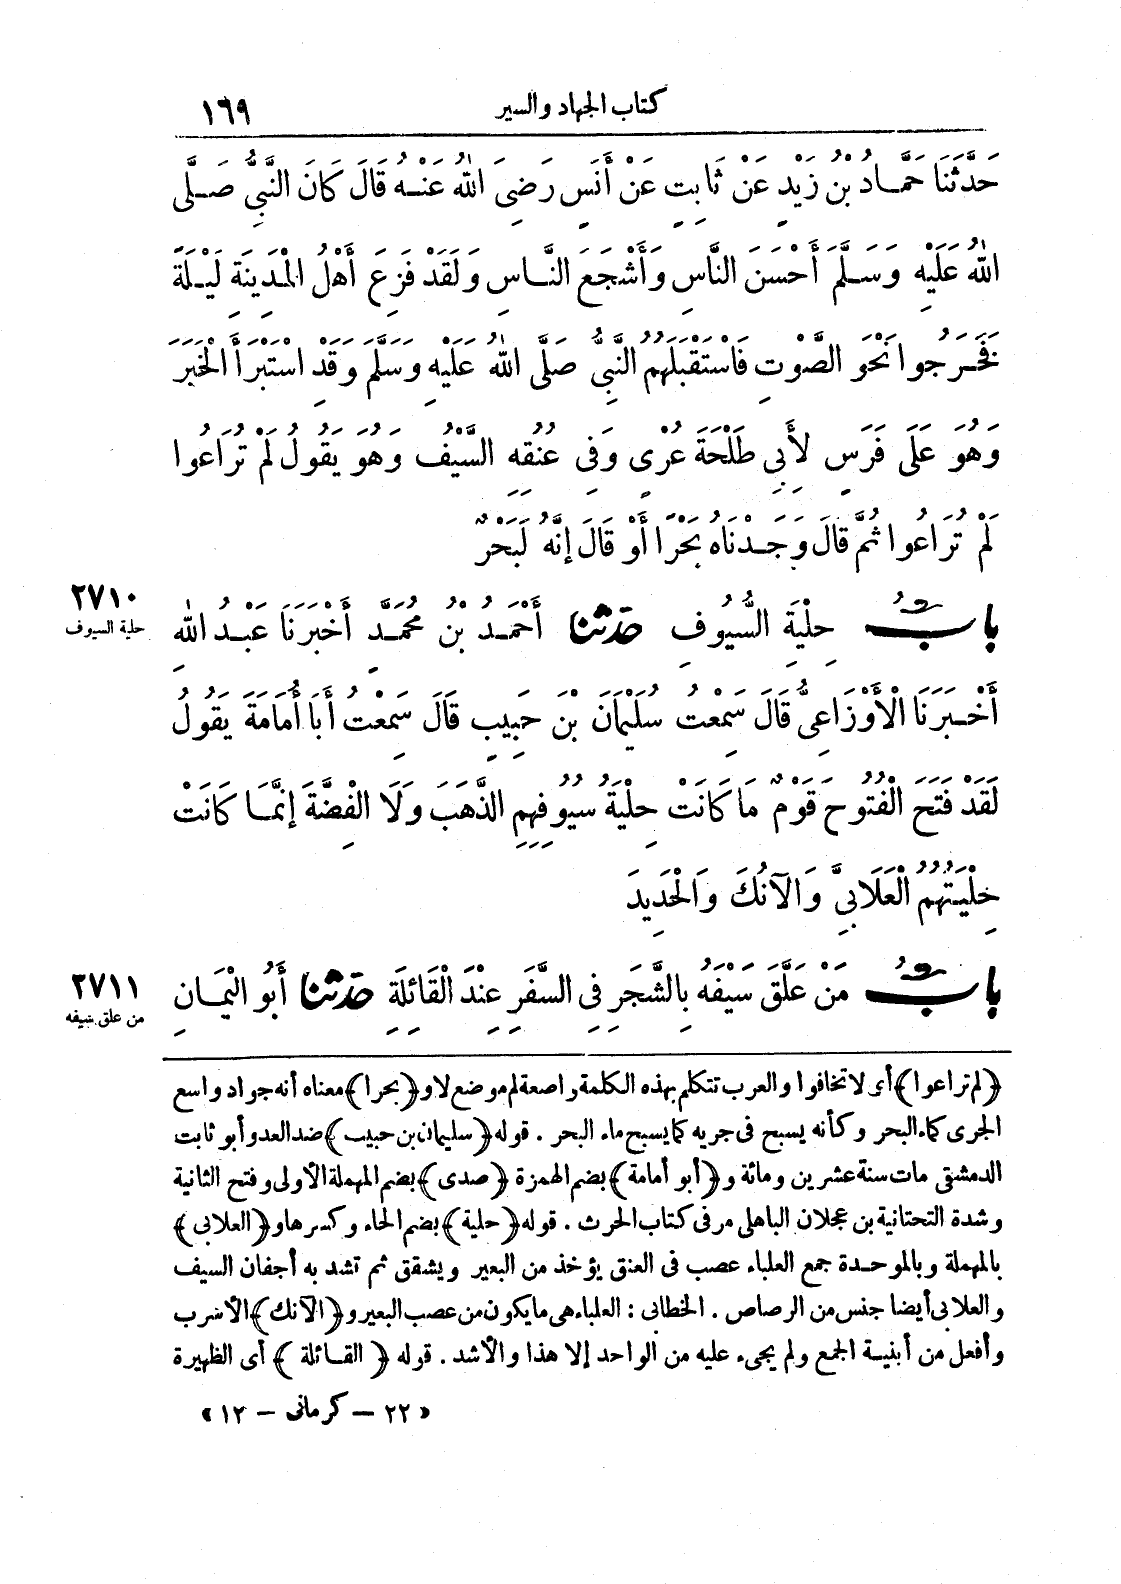 كتاب الجهاد والسير
١٦٩
حَدَّثَنَا حَمَّادُ بْنُ زَيْدٍ عَنْ ثَابِتٍ عَنْ أَنَسٍ رَضِيَ اللهُ عَنْهُ قَالَ كَانَ النَّبِيُّ صَلَّى
اللهُ عَلَيْهِ وَسَلَّمَ أَحْسَنَ النَّاسِ وَأَشْجَعَ النَّاسِ وَلَقَدْ فَزِعَ أَهْلُ الْمَدِينَةِ لَيْلَةً
فَخَرَجُوا نَحْوَ الصَّوْتِ فَاسْتَقْبَلَهُمُ النَّبِيُّ صَلَّى اللهُ عَلَيْهِ وَسَلَّمَ وَقَدِ اسْتَبْرَأَ الْخَبَرَ
وَهُوَ عَلَى فَرَسٍ لِأَبِي طَلْحَةَ عُرْيٍ وَفِي عُنُقِهِ السَّيْفُ وَهُوَ يَقُولُ لَمْ تُرَاعُوا
لَمْ تُرَاعُوا ثُمَّ قَالَ وَجَدْنَاهُ بَحْرًا أَوْ قَالَ إِنَّهُ لَبَحْرٌ
٢٧١٠
حلية السيوف
بَابُ حِلْيَةِ السُّيُوفِ حدثنا أَحْمَدُ بْنُ مُحَمَّدٍ أَخْبَرَنَا عَبْدُ اللهِ
أَخْبَرَنَا الْأَوْزَاعِيُّ قَالَ سَمِعْتُ سُلَيْمَانَ بْنَ حَبِيبٍ قَالَ سَمِعْتُ أَبَا أُمَامَةَ يَقُولُ
لَقَدْ فَتَحَ الْفُتُوحَ قَوْمٌ مَا كَانَتْ حِلْيَةُ سُيُوفِهِمِ الذَّهَبَ وَلَا الْفِضَّةَ إِنَّمَا كَانَتْ
حِلْيَتُهُمُ الْعَلَابِيَّ وَالْآنُكَ وَالْحَدِيدَ
٢٧١١
من علق سيفه
بَابُ مَنْ عَلَّقَ سَيْفَهُ بِالشَّجَرِ فِي السَّفَرِ عِنْدَ الْقَائِلَةِ حدثنا أَبُو الْيَمَانِ
﴿لم تراعوا﴾ أى لا تخافوا والعرب تتكلم بهذه الكلمة واضعة لم موضع لا و﴿بحرا﴾ معناه أنه جواد واسع
الجرى كماء البحر وكأنه يسبح فى جريه كما يسبح ماء البحر . قوله ﴿سليمان بن حبيب﴾ ضد العدو أبو ثابت
الدمشقى مات سنة عشرين ومائة و﴿أبو أمامة﴾ بضم الهمزة ﴿صدى﴾ بضم المهملة الأولى وفتح الثانية
وشدة التحتانية بن عجلان الباهلى مر فى كتاب الحرث . قوله ﴿حلية﴾ بضم الحاء وكسرها و﴿العلابى﴾
بالمهملة وبالموحدة جمع العلباء عصب فى العنق يؤخذ من البعير ويشقق ثم تشد به أجفان السيف
والعلابى أيضا جنس من الرصاص . الخطابى : العلباء هى ما يكون من عصب البعير و﴿الآنك﴾ الأسرب
وأفعل من أبنية الجمع ولم يجىء عليه من الواحد إلا هذا والأشد . قوله ﴿القائلة﴾ أى الظهيرة
«٢٢ – كرمانى – ١٢»